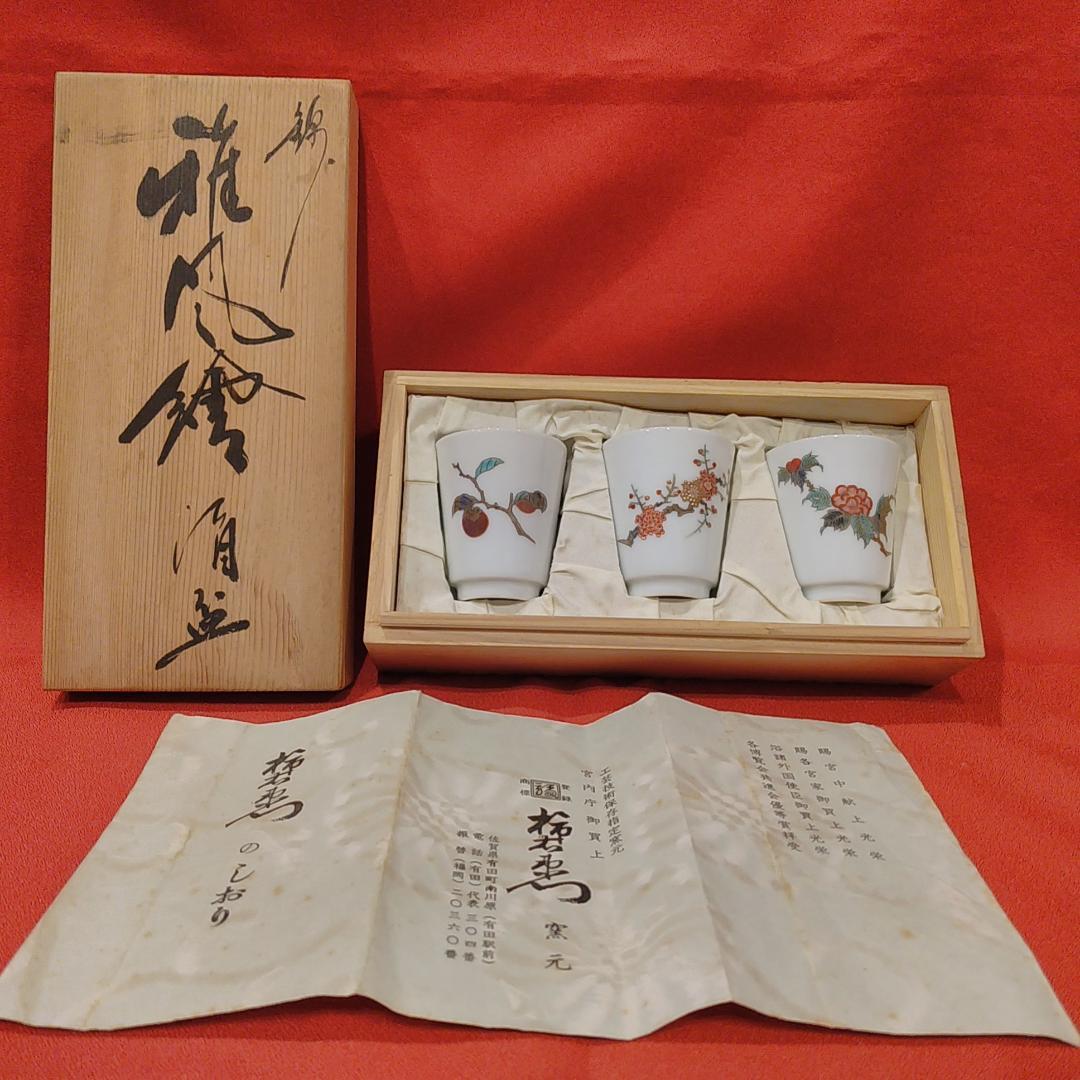 錦
雅風繪 酒盃
賜宮中献上光栄
賜各宮家御買上光栄
浴諸外国使臣御買上光栄
各博覧会共進会優等賞拝受
工芸技術保存指定窯元
宮内庁御買上
登録
商標
柿右衛門 窯元
佐賀県有田町南川原(有田駅前)
電話(有田)代表三〇四番
振替(福岡)二〇三六〇番
柿右衛門 のしおり